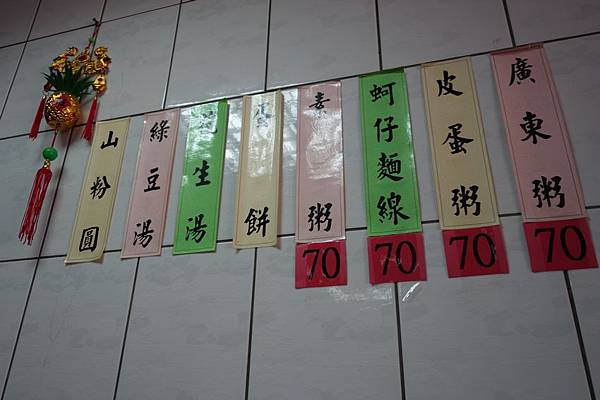 廣東粥 70
皮蛋粥 70
蚵仔麵線 70
素粥 70
餅
花生湯
綠豆湯
山粉圓